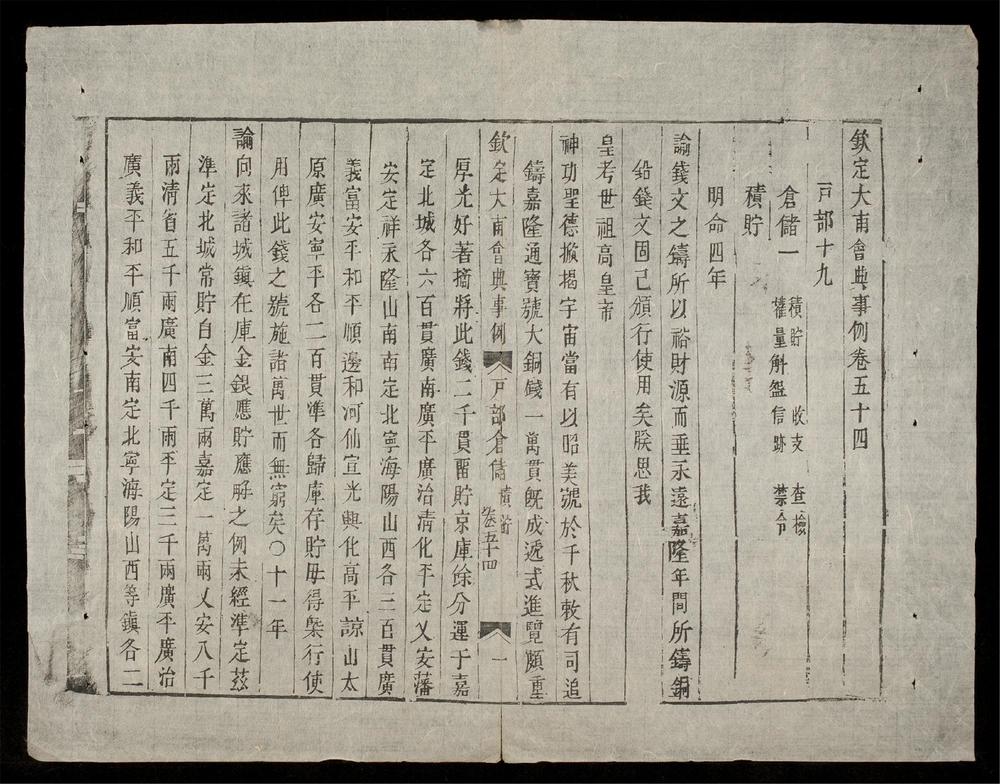 欽定大南會典事例卷五十四
戸部十九
倉儲一
積貯 收支 查檢
權量斛盤信跡 禁令
積貯
明命四年
諭錢文之鑄所以裕財源而垂永遠嘉隆年間所鑄銅
鉛錢文固已頒行使用矣朕思我
皇考世祖高皇帝
神功聖德掀揭宇宙當有以昭美號於千秋敕有司追
鑄嘉隆通寶號大銅錢一萬貫旣成遞式進覽頗重
欽定大南會典事例 戸部倉儲 積貯 卷五十四 一
厚光好著摘將此錢二千貫留貯京庫餘分運于嘉
定北城各六百貫廣南廣平廣治清化平定乂安藩
安定祥永隆山南南定北寧海陽山西各三百貫廣
義富安平和平順邊和河仙宣光興化高平諒山太
原廣安寧平各二百貫準各歸庫存貯毋得槩行使
用俾此錢之號施諸萬世而無窮矣〇十一年
諭向來諸城鎭在庫金銀應貯應解之例未經準定茲
準定北城常貯自金三萬兩嘉定一萬兩乂安八千
兩清省五千兩廣南四千兩平定三千兩廣平廣治
廣義平和平順富安南定北寧海陽山西等鎭各二